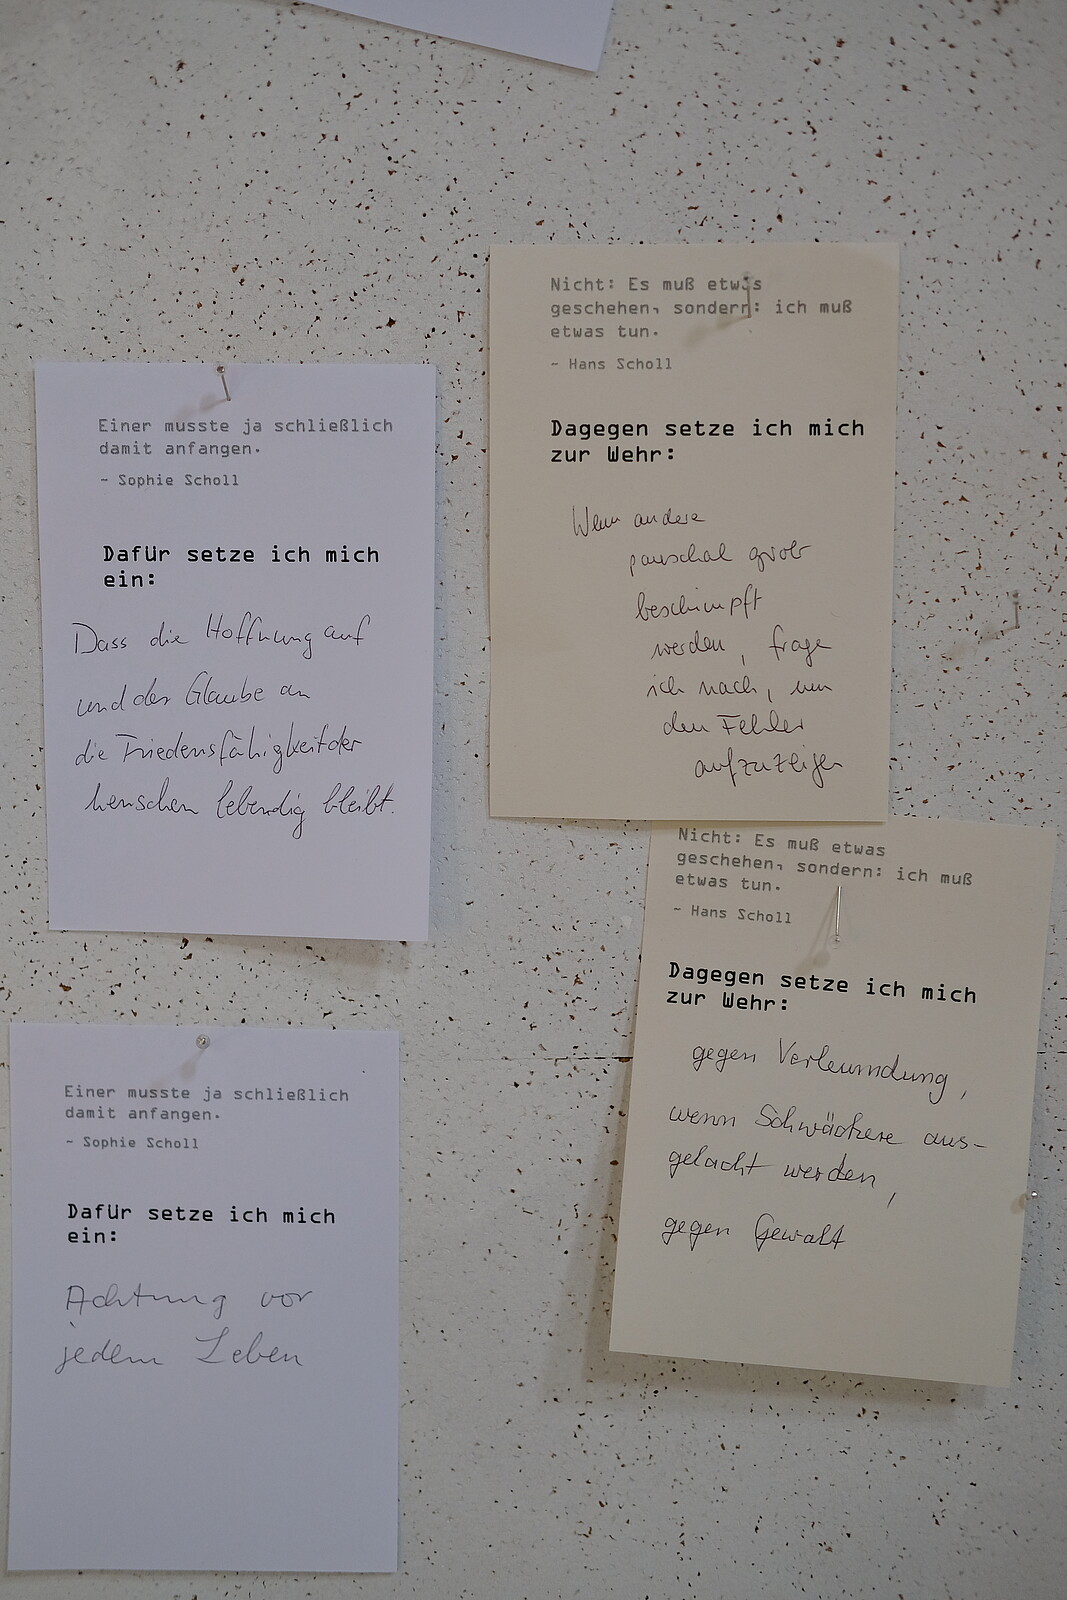 Nicht: Es muß etwas
geschehen, sondern: ich muß
etwas tun.
~ Hans Scholl
Dagegen setze ich mich
zur Wehr:
Wenn andere
pauschal grob
beschimpft
werden, frage
ich nach, um
den Fehler
aufzuzeigen
Einer musste ja schließlich
damit anfangen.
~ Sophie Scholl
Dafür setze ich mich
ein:
Dass die Hoffnung auf
und der Glaube an
die Friedensfähigkeit der
Menschen lebendig bleibt.
Nicht: Es muß etwas
geschehen, sondern: ich muß
etwas tun.
~ Hans Scholl
Dagegen setze ich mich
zur Wehr:
gegen Verleumdung,
wenn Schwächere aus-
gelacht werden,
gegen Gewalt
Einer musste ja schließlich
damit anfangen.
~ Sophie Scholl
Dafür setze ich mich
ein:
Achtung vor
jedem Leben